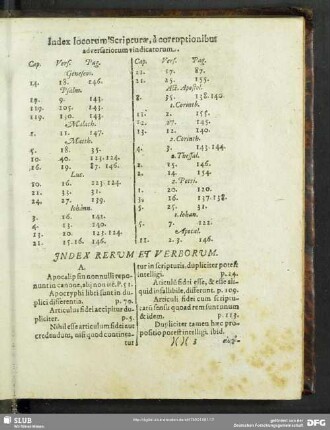 Index locorum Scripturæ, à corruptionibus
adversariorum vindicatorum.
Cap. Vers. Pag.
Geneseos.
14. 18. 146.
Psalm.
19. 9. 143.
119. 105. 143.
119. 130. 143.
Malach.
2. 11. 147.
Matth.
5. 18. 35.
10. 40. 123.124.
16. 19. 87. 146.
Luc.
10. 16. 123.124.
21. 31.
24. 27. 139.
Iohann.
3. 16. 142.
4. 23. 240.
13. 20. 123.124.
21. 15.16. 146.
Cap. Vers. Pag.
21. 17. 87.
21. 25. 146.
Act. Apostol.
8. 35. 138.
1. Corinth.
11. 2. 155.
12. 27. 145.
13. 12. 140.
2. Corinth.
4. 3. 143.144.
2. Thessal.
2. 15. 155.
14. 154.
2. Petri.
1. 20. 120.
3. 16. 137.138.
3. 25. 31.
1. Iohan.
5. 7. 122.
Apocal.
12. 1.3. 146.
INDEX RERUM ET VERBORUM.
A.
Apocalypsin nonnulli repo-
nunt in canone, alij non
Apocryphi libri sunt in du-
plici differentia. p. 70.
Articulus fidei accipitur du-
pliciter. p. 5.
Nihil esse articulum fidei aut
credendum, nisi quod contine-
tur
tur in scripturis, dupliciter potest
intelligi. p. 24.
Articulū fidei esse, & esse ali-
quid infallibile, differunt. p. 109.
Articuli fidei cum scriptu-
caris sensu quoad rem sunt unum
& idem. p. 113.
Dupliciter tamen hæc pro-
positio potest intelligi. ibid.
SLUB
Wir führen Wissen.
http://digital.slub-dresden.de/
gefördert von der
Deutschen Forschungsgemeinschaft
DFG